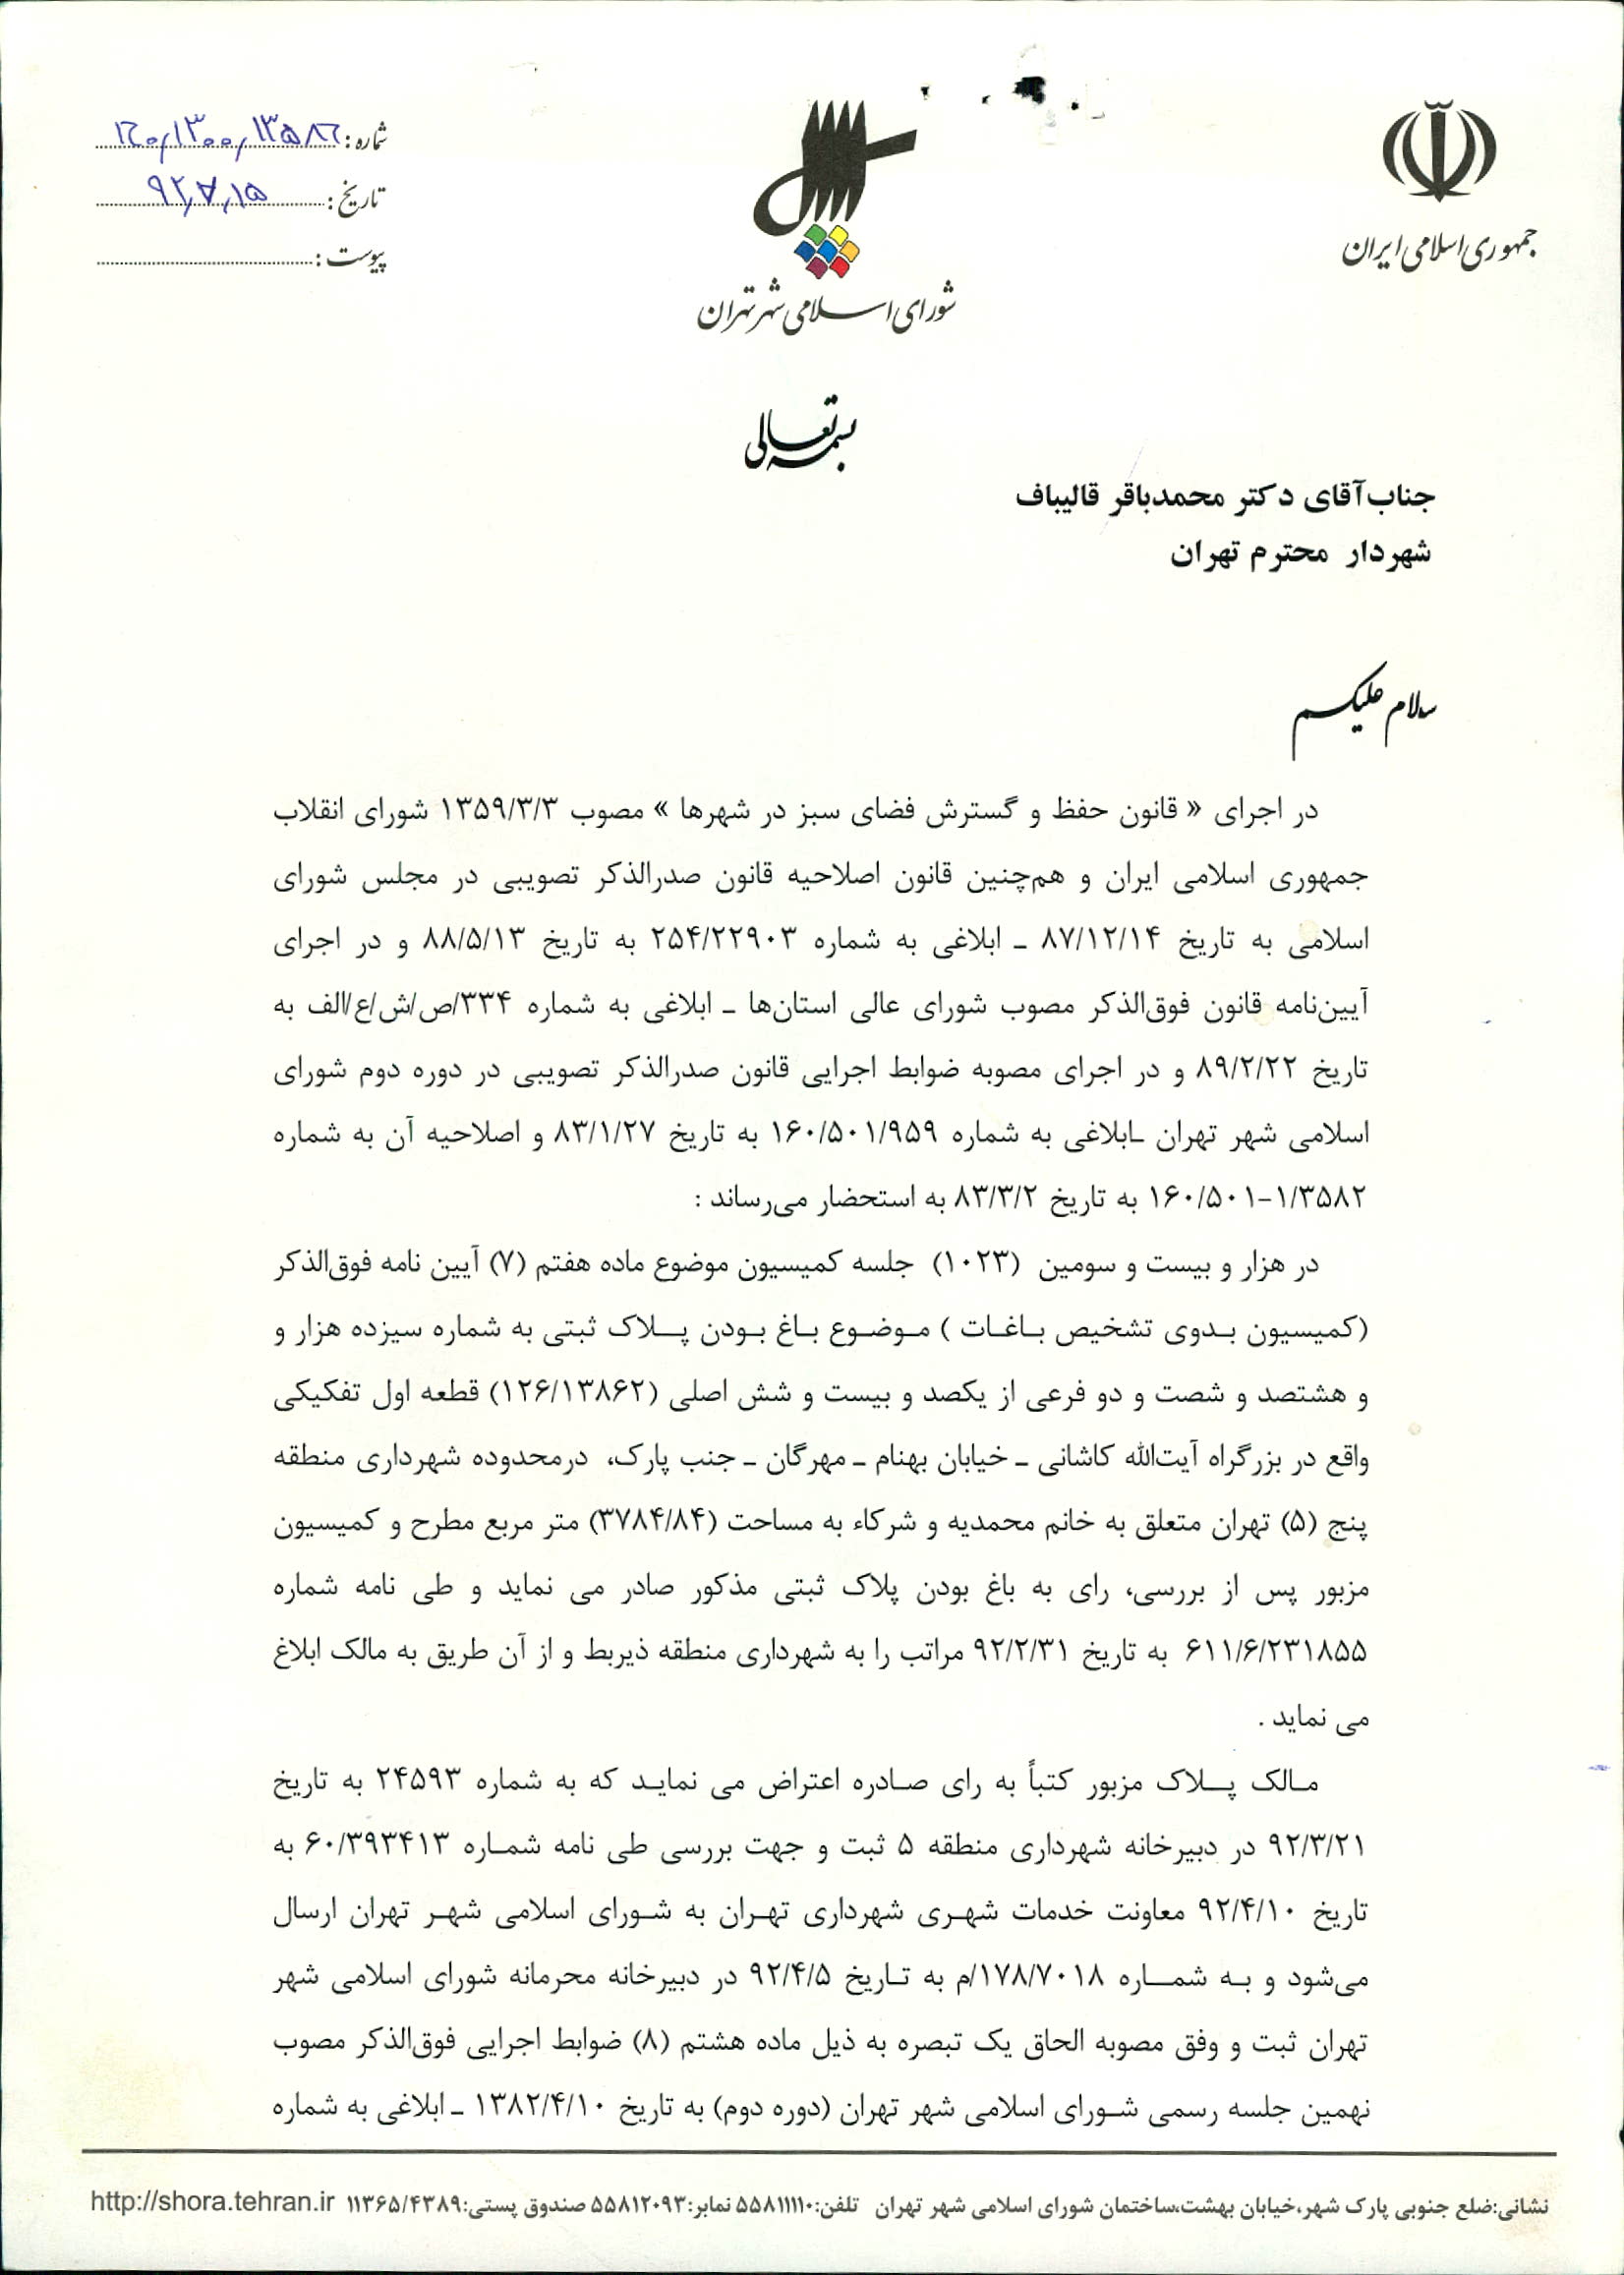 جمهوری اسلامی ایران
شورای اسلامی شهر تهران
شماره: ۱۶۰/۱۳۰۰/۱۳۵۸۶
تاریخ: ۹۲/۷/۱۵
پیوست:
بسمه تعالی
جناب‌آقای دکتر محمدباقر قالیباف
شهردار محترم تهران
سلام علیکم
در اجرای « قانون حفظ و گسترش فضای سبز در شهرها » مصوب ۱۳۵۹/۳/۳ شورای انقلاب
جمهوری اسلامی ایران و هم‌چنین قانون اصلاحیه قانون صدرالذکر تصویبی در مجلس شورای
اسلامی به تاریخ ۸۷/۱۲/۱۴ ـ ابلاغی به شماره ۲۵۴/۲۲۹۰۳ به تاریخ ۸۸/۵/۱۳ و در اجرای
آیین‌نامه قانون فوق‌الذکر مصوب شورای عالی استان‌ها ـ ابلاغی به شماره ۳۳۴/ص/ش/ع/الف به
تاریخ ۸۹/۲/۲۲ و در اجرای مصوبه ضوابط اجرایی قانون صدرالذکر تصویبی در دوره دوم شورای
اسلامی شهر تهران ـابلاغی به شماره ۱۶۰/۵۰۱/۹۵۹ به تاریخ ۸۳/۱/۲۷ و اصلاحیه آن به شماره
۱۶۰/۵۰۱-۱/۳۵۸۲ به تاریخ ۸۳/۳/۲ به استحضار می‌رساند :
در هزار و بیست و سومین (۱۰۲۳) جلسه کمیسیون موضوع ماده هفتم (۷) آیین نامه فوق‌الذکر
(کمیسیون بـدوی تشخیص بـاغـات ) مـوضـوع بـاغ بـودن پـــلاک ثبتی به شماره سیزده هزار و
و هشتصد و شصت و دو فرعی از یکصد و بیست و شش اصلی (۱۲۶/۱۳۸۶۲) قطعه اول تفکیکی
واقع در بزرگراه آیت‌الله کاشانی ـ خیابان بهنام ـ مهرگان ـ جنب پارک، درمحدوده شهرداری منطقه
پنج (۵) تهران متعلق به خانم محمدیه و شرکاء به مساحت (۳۷۸۴/۸۴) متر مربع مطرح و کمیسیون
مزبور پس از بررسی، رای به باغ بودن پلاک ثبتی مذکور صادر می نماید و طی نامه شماره
۶۱۱/۶/۲۳۱۸۵۵ به تاریخ ۹۲/۲/۳۱ مراتب را به شهرداری منطقه ذیربط و از آن طریق به مالک ابلاغ
می نماید .
مـالک پـــلاک مزبور کتباً به رای صـادره اعتراض می نمایـد که به شماره ۲۴۵۹۳ به تاریخ
۹۲/۳/۲۱ در دبیرخانه شهرداری منطقه ۵ ثبت و جهت بررسی طی نامه شمـاره ۶۰/۳۹۳۴۱۳ به
تاریخ ۹۲/۴/۱۰ معاونت خدمات شهـری شهرداری تهـران به شـورای اسلامی شهـر تهران ارسال
می‌شود و بـه شمـــاره ۱۷۸/۷۰۱۸/م به تـاریخ ۹۲/۴/۵ در دبیرخانه محرمانه شورای اسلامی شهر
تهران ثبت و وفق مصوبه الحاق یک تبصره به ذیل ماده هشتم (۸) ضوابط اجرایی فوق‌الذکر مصوب
نهمین جلسه رسمی شـورای اسلامی شهر تهران (دوره دوم) به تاریخ ۱۳۸۲/۴/۱۰ ـ ابلاغی به شماره
نشانی:ضلع جنوبی پارک شهر،خیابان بهشت،ساختمان شورای اسلامی شهر تهران تلفن:۵۵۸۱۱۱۱۰ نمابر:۵۵۸۱۲۰۹۳ صندوق پستی:۱۱۳۶۵/۴۳۸۹ http://shora.tehran.ir